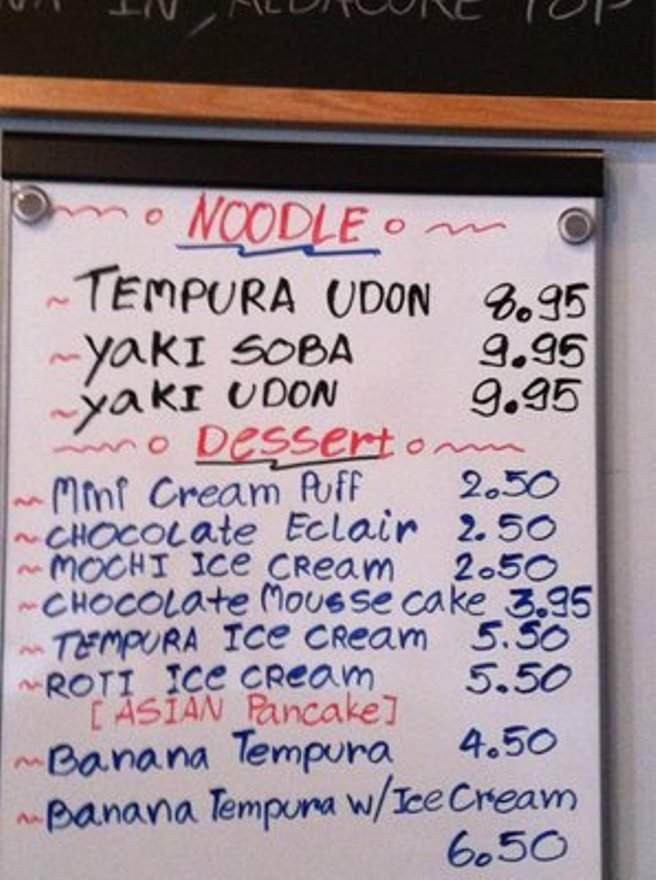 IN, ALBACORE
NOODLE
~ TEMPURA UDON 8.95
~ YaKI SOBA 9.95
~ YaKI UDON 9.95
Dessert
~ Mini Cream Puff 2.50
~ CHOCOLate Eclair 2.50
~ MOCHI Ice CReam 2.50
~ CHOCOLate Mousse cake 3.95
~ TEMPURA Ice CReam 5.50
~ ROTI Ice CReam 5.50
[ASIAN Pancake]
~ Banana Tempura 4.50
~ Banana Tempura w/Ice Cream
6.50